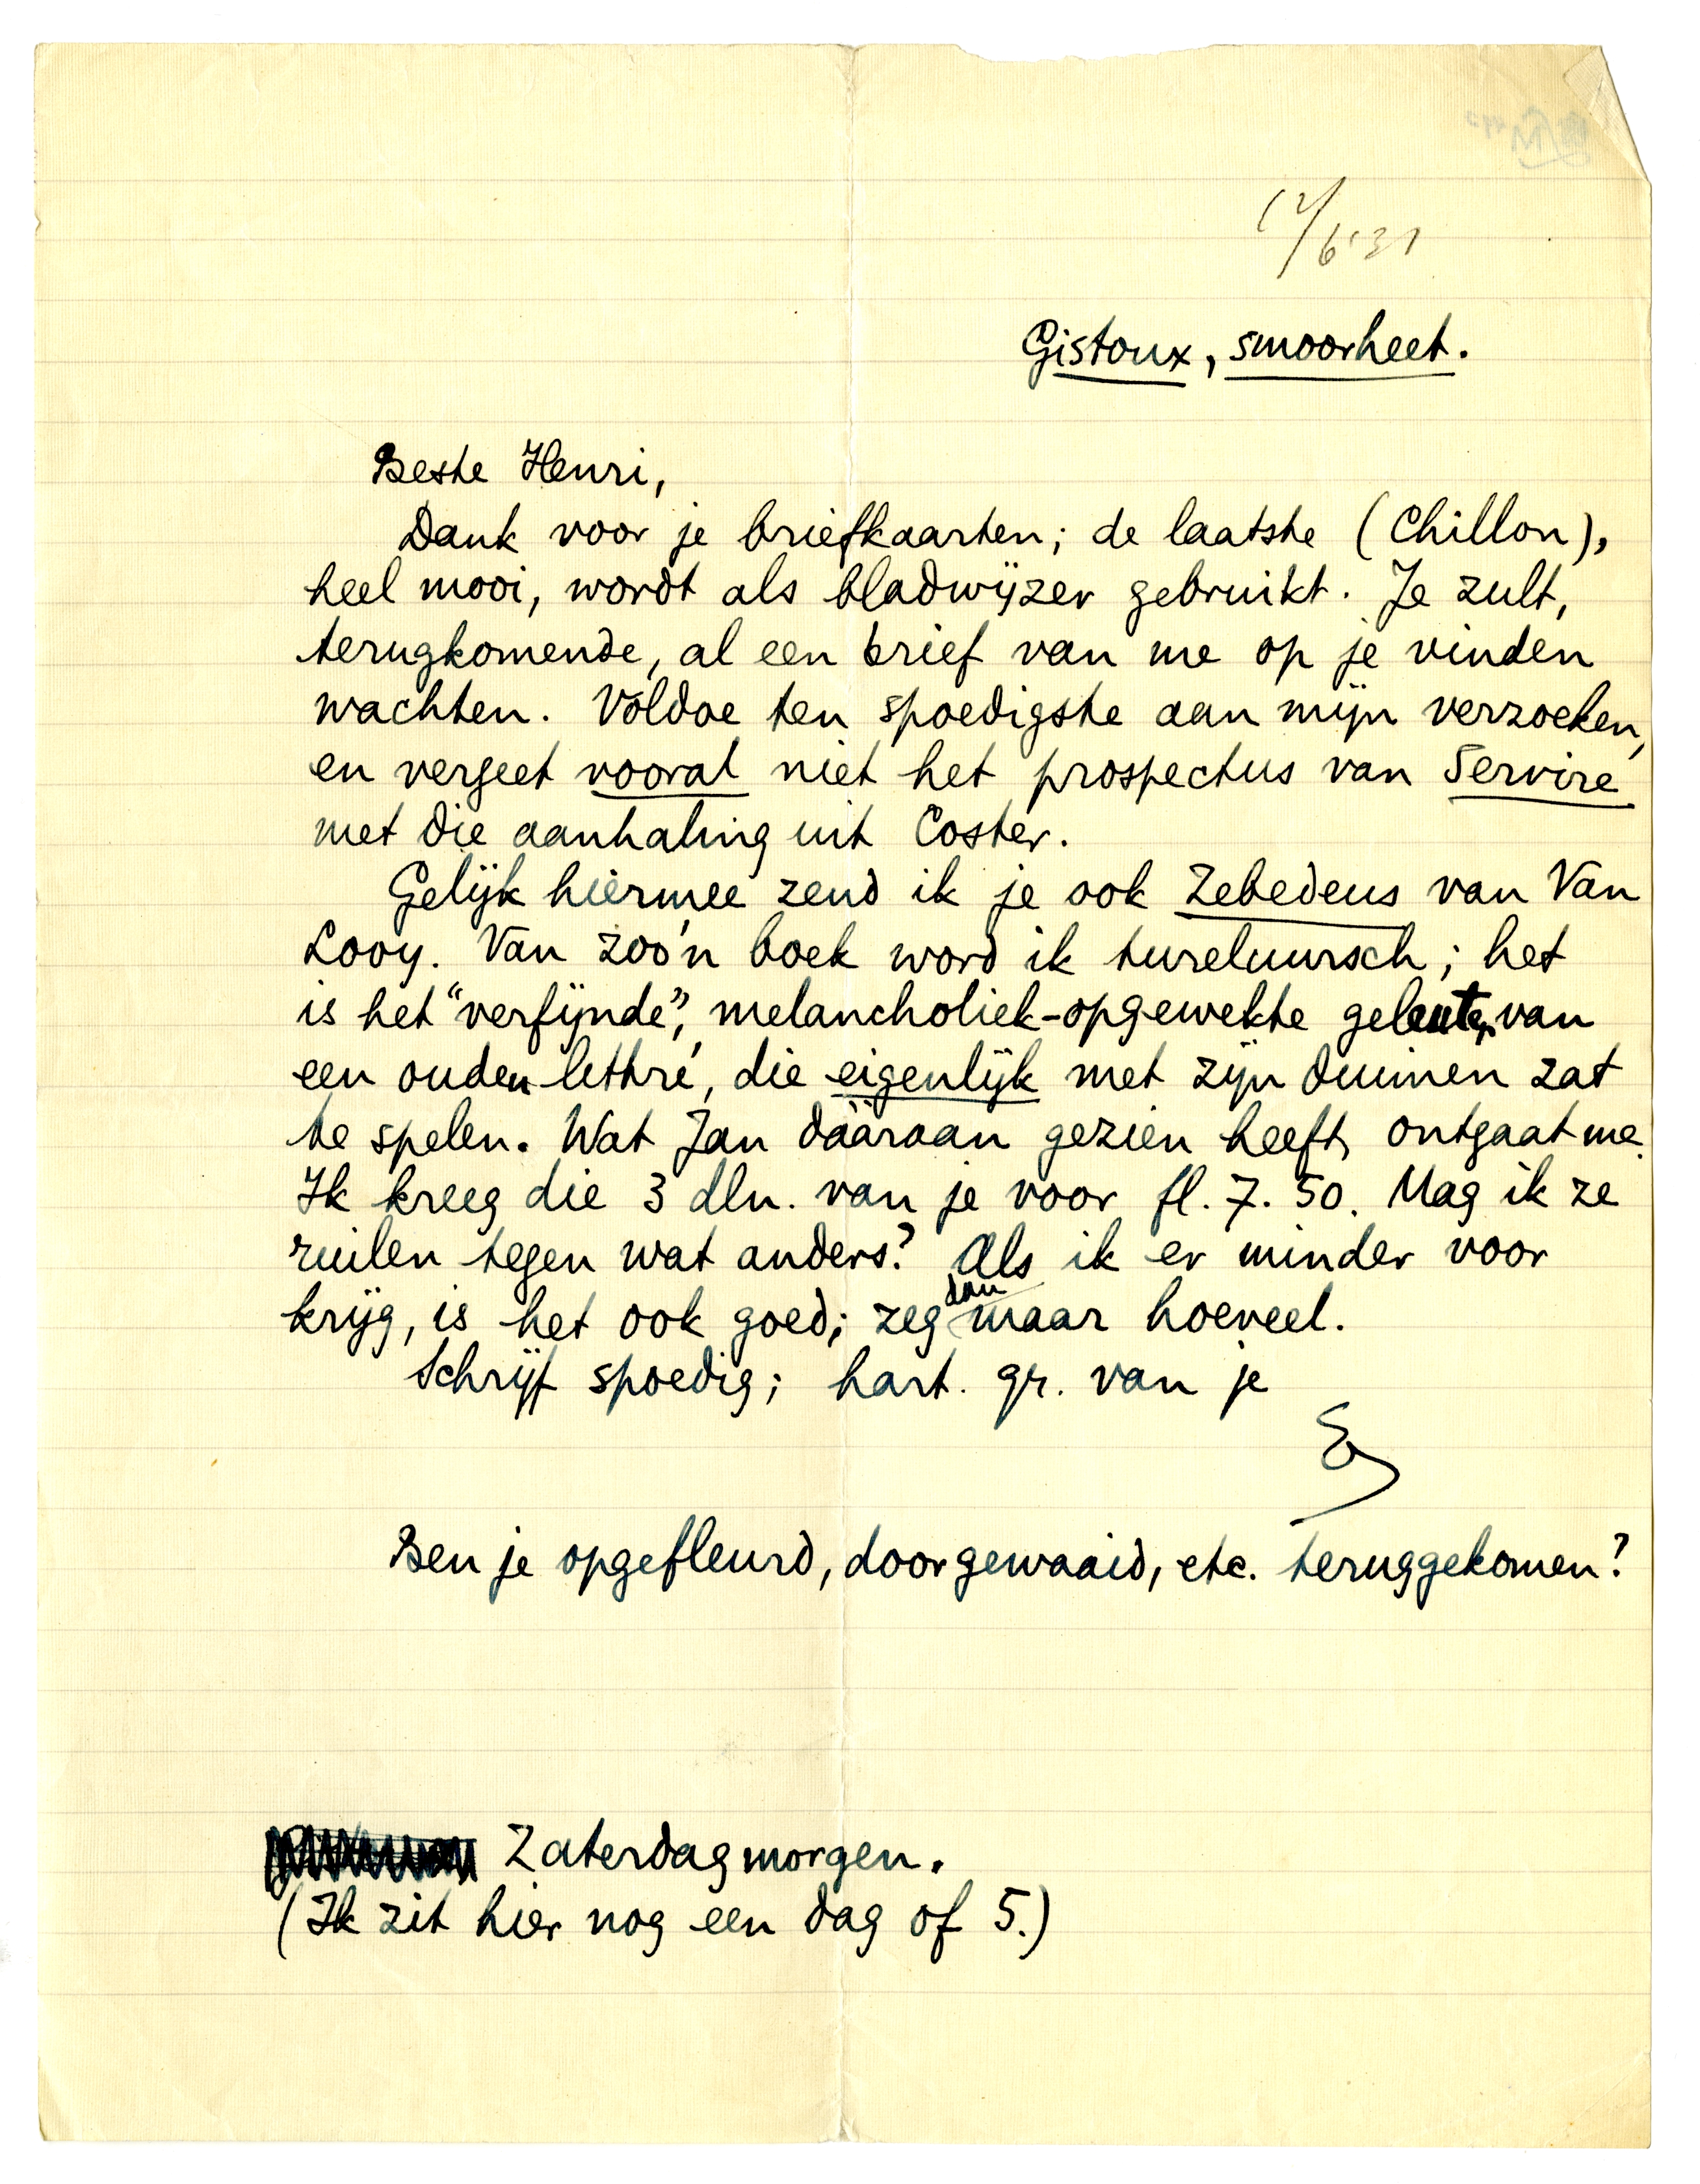 12/6'31
Gistoux, smoorheet.
Beste Henri,
Dank voor je briefkaarten; de laatste (Chillon),
heel mooi, wordt als bladwijzer gebruikt. Je zult,
terugkomende, al een brief van me op je vinden
wachten. Voldoe ten spoedigste aan mijn verzoeken,
en vergeet vooral niet het prospectus van Servire
met die aanhaling uit Coster.
Gelijk hiermee zend ik je ook Zebedeus van Van
Looy. Van zoo'n boek word ik tureluursch; het
is het "verfijnde", melancholiek-opgewekte geleuter van
een ouden lettré, die eigenlijk met zijn duimen zat
te spelen. Wat Jan dààraan gezien heeft, ontgaat me.
Ik kreeg die 3 dln. van je voor fl. 7.50. Mag ik ze
ruilen tegen wat anders? Als ik er minder voor
krijg, is het ook goed; zeg dan maar hoeveel.
Schrijf spoedig; hart. gr. van je
E
Ben je opgefleurd, doorgewaaid, etc. teruggekomen?
Zaterdagmorgen.
(Ik zit hier nog een dag of 5.)